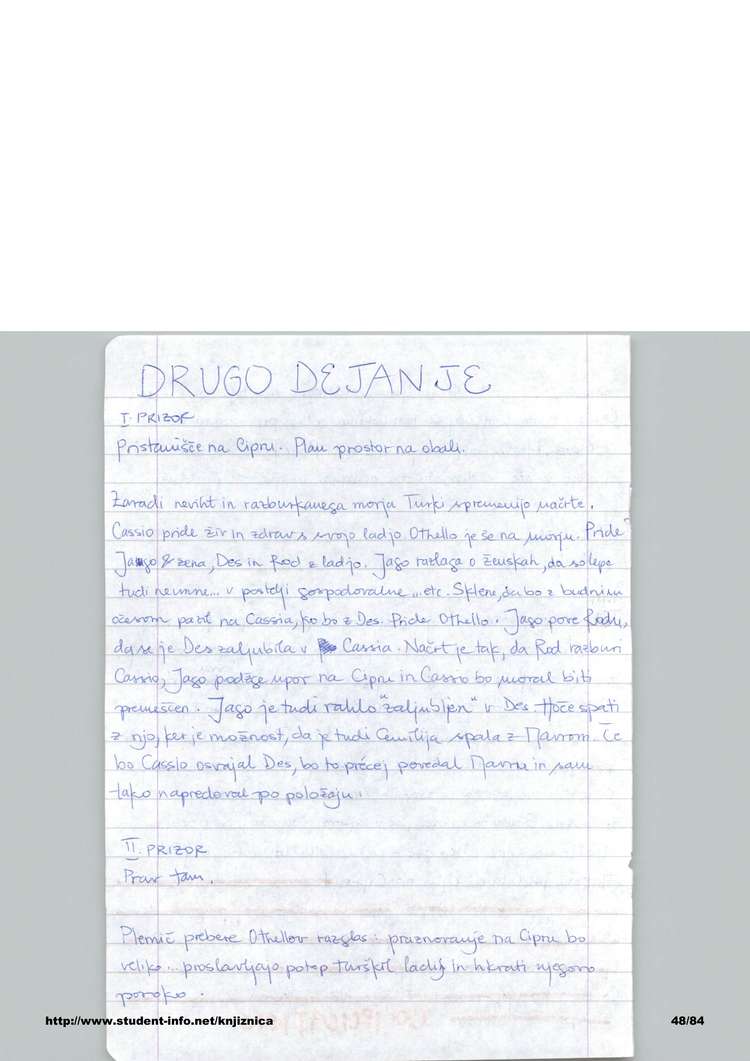 DRUGO DEJANJE
I. PRIZOR
Pristanišče na Cipru. Plan prostor na obali.
Zaradi neviht in razburkanega morja Turki spremenijo načrte.
Cassio pride živ in zdrav s svojo ladjo. Othello je še na morju. Pride
Jago & žena, Des in Rod z ladjo. Jago razlaga o ženskah, da so lepe
tudi neumne... v postelji gospodovalne ...etc. Sklene, da bo z budnim
očesom pazil na Cassia, ko bo z Des. Pride Othello. Jago pove Rodu,
da se je Des zaljubila v Cassia. Načrt je tak, da Rod razburi
Cassio, Jago podžge upor na Cipru in Cassio bo moral biti
premeščen. Jago je tudi rahlo "zaljubljen" v Des. Hoče spati
z njo, ker je možnost, da je tudi Cemilija spala z Mavrom. Če
bo Cassio osvajal Des, bo to precej povedal Mavru in sam
tako napredoval po položaju.
II. PRIZOR
Prav tam.
Plemič prebere Othellov razglas: praznovanje na Cipru bo
veliko... proslavljajo potop turških ladij in hkrati njegovo
poroko.
http://www.student-info.net/knjiznica
48/84